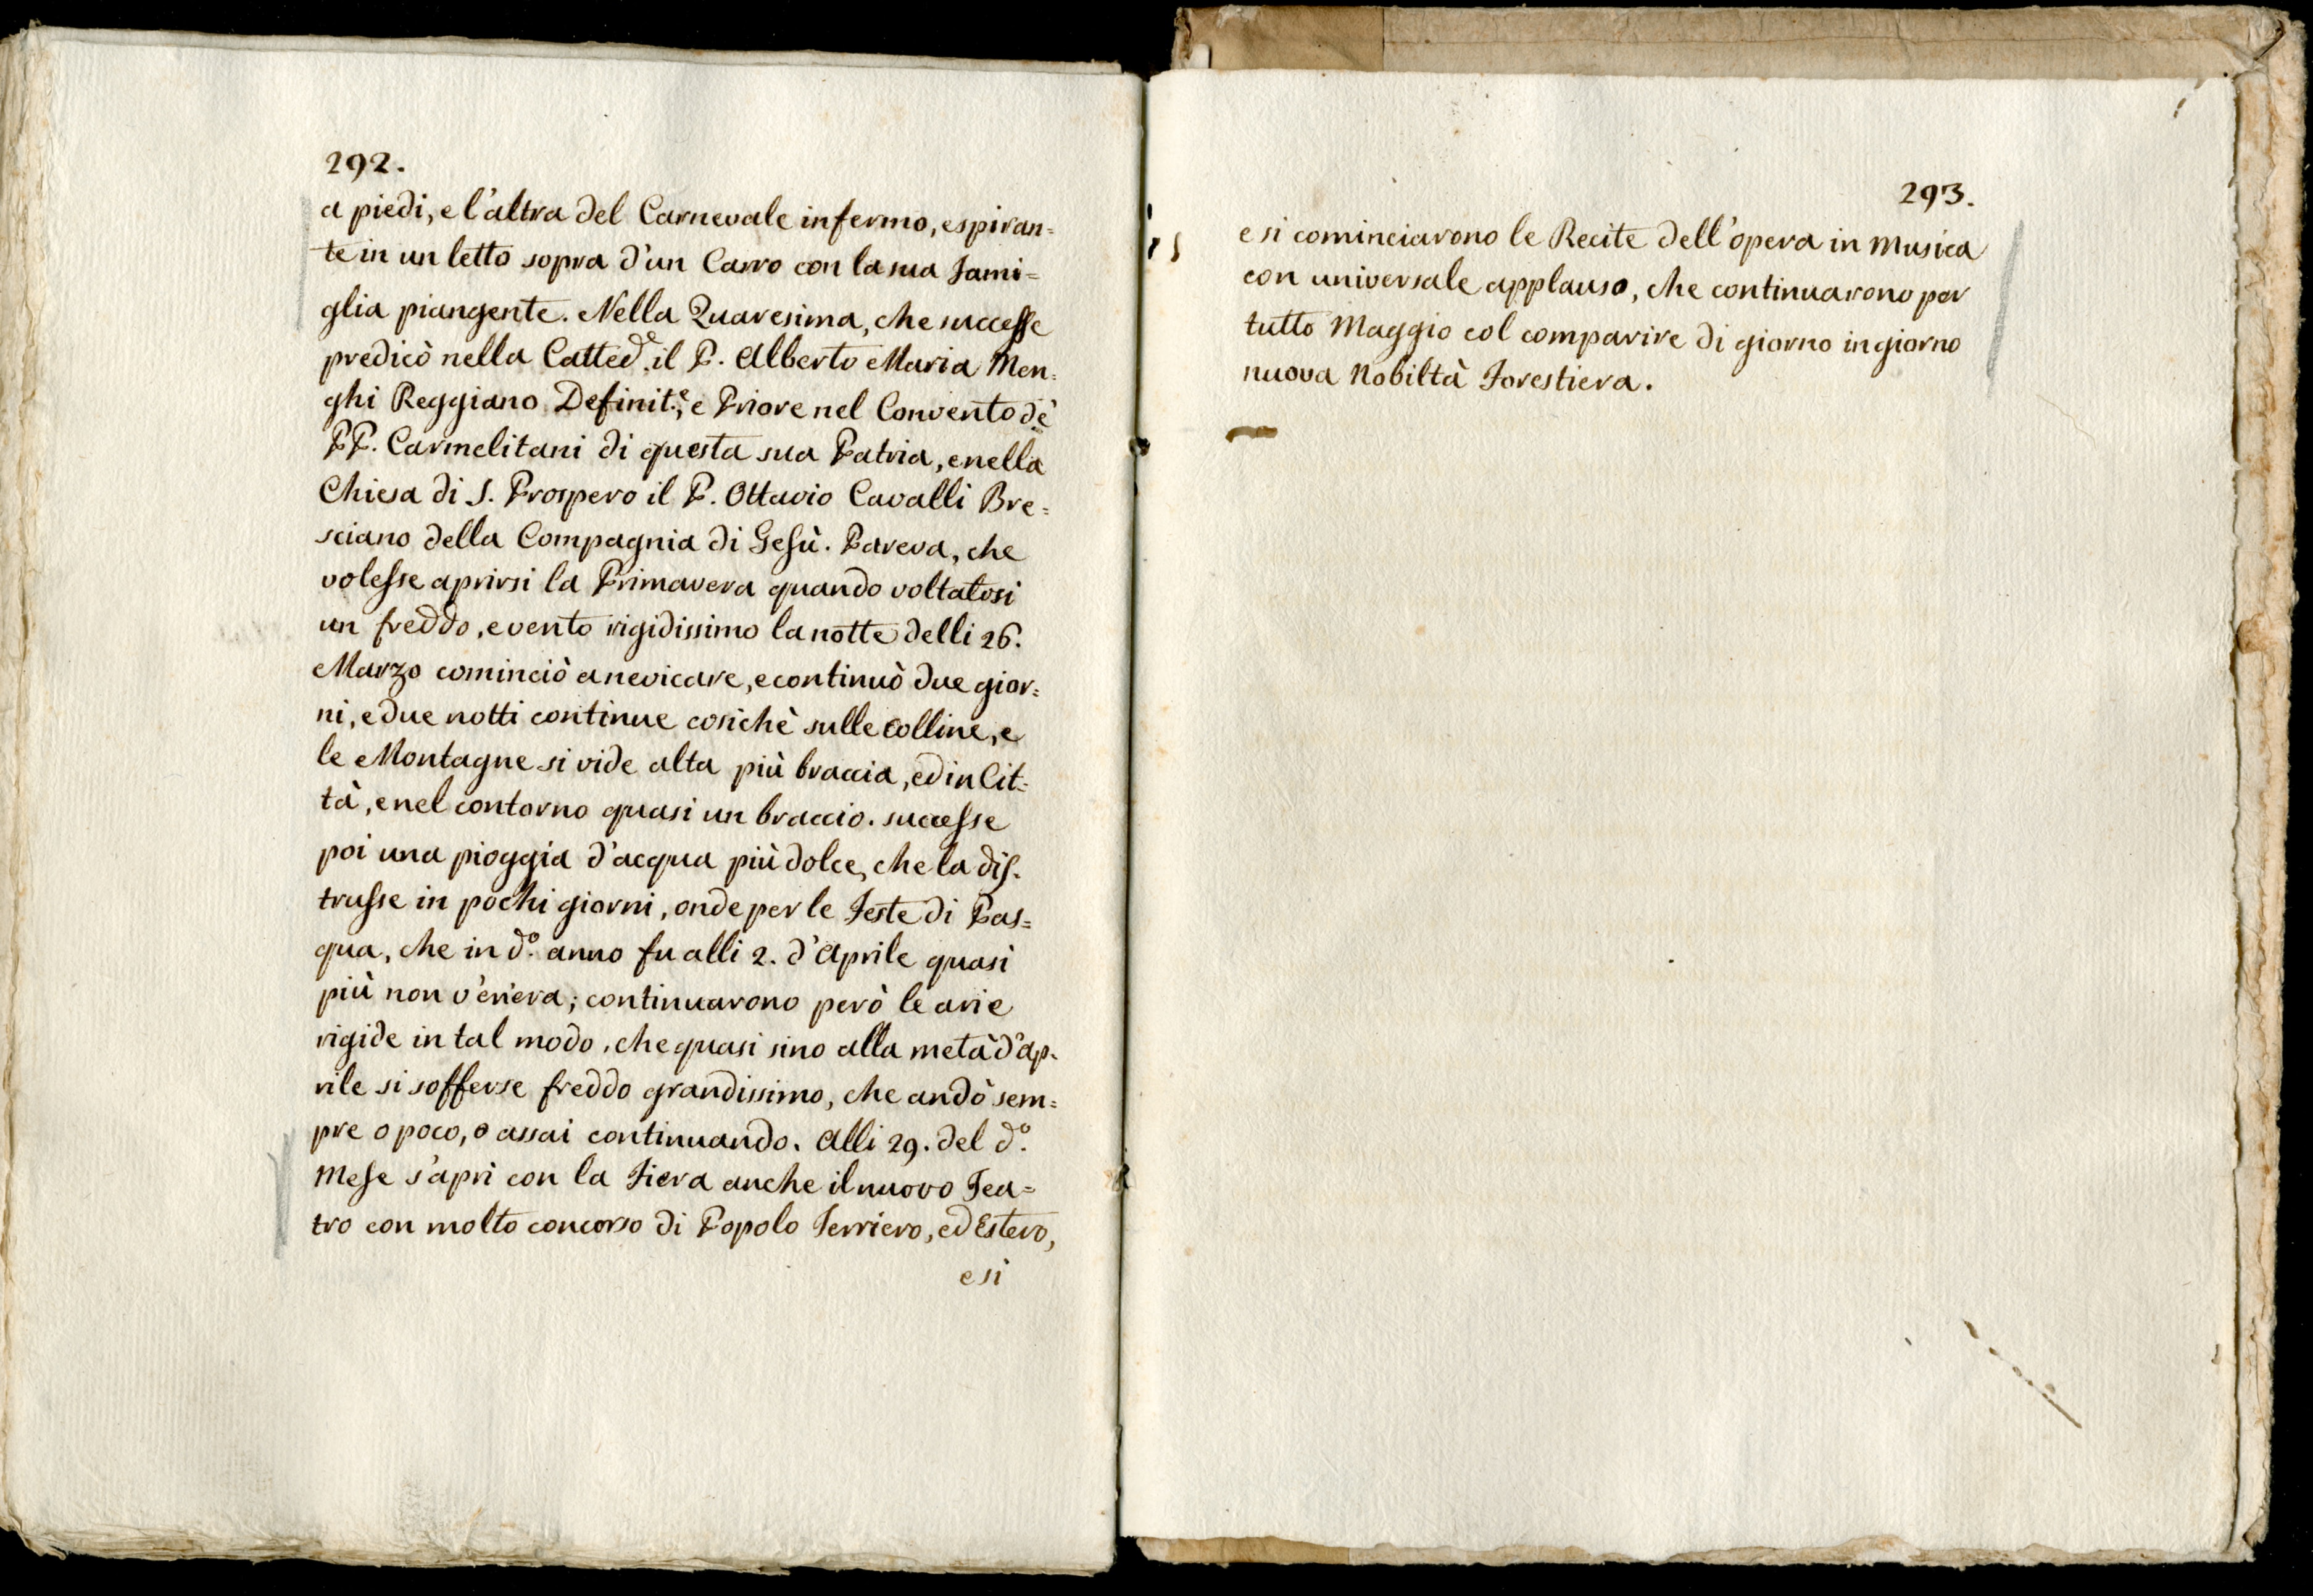 292.
a piedi, e l'altra del Carnevale infermo, espiran=
te in un letto sopra d'un Carro con la sua Fami=
glia piangente. Nella Quaresima, che successe
predicò nella Catted.e il P. Alberto Maria Men=
ghi Reggiano Definit.e, e Priore nel Convento dè
PP. Carmelitani di questa sua Patria, e nella
Chiesa di S. Prospero il P. Ottavio Cavalli Bre=
sciano della Compagnia di Gesù. Pareva, che
volesse aprirsi la Primavera quando voltatosi
un freddo, e vento rigidissimo la notte delli 26.
Marzo cominciò a nevicare, e continuò due gior=
ni, e due notti continue cosichè sulle Colline, e
le Montagne si vide alta più braccia, ed in Cit=
tà, e nel contorno quasi un braccio. successe
poi una pioggia d'acqua più dolce, che la dis.
trusse in pochi giorni, onde per le Feste di Pas=
qua, che in d.o anno fu alli 2. d'Aprile quasi
più non v'en'era; continuarono però le arie
rigide in tal modo, che quasi sino alla metà d'Ap.
rile si sofferse freddo grandissimo, che andò sem=
pre o poco, o assai continuando. Alli 29. del d.o
Mese s'aprì con la Fiera anche il nuovo Tea=
tro con molto concorso di Popolo Terriero, ed Estero,
e si
293.
e si cominciarono le Recite dell'opera in Musica
con universale applauso, che continuarono per
tutto Maggio col comparire di giorno in giorno
nuova Nobiltà Forestiera.